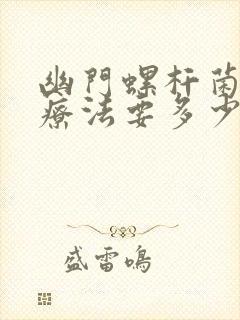 幽門螺杆菌
療法要多少
盛雷鳴